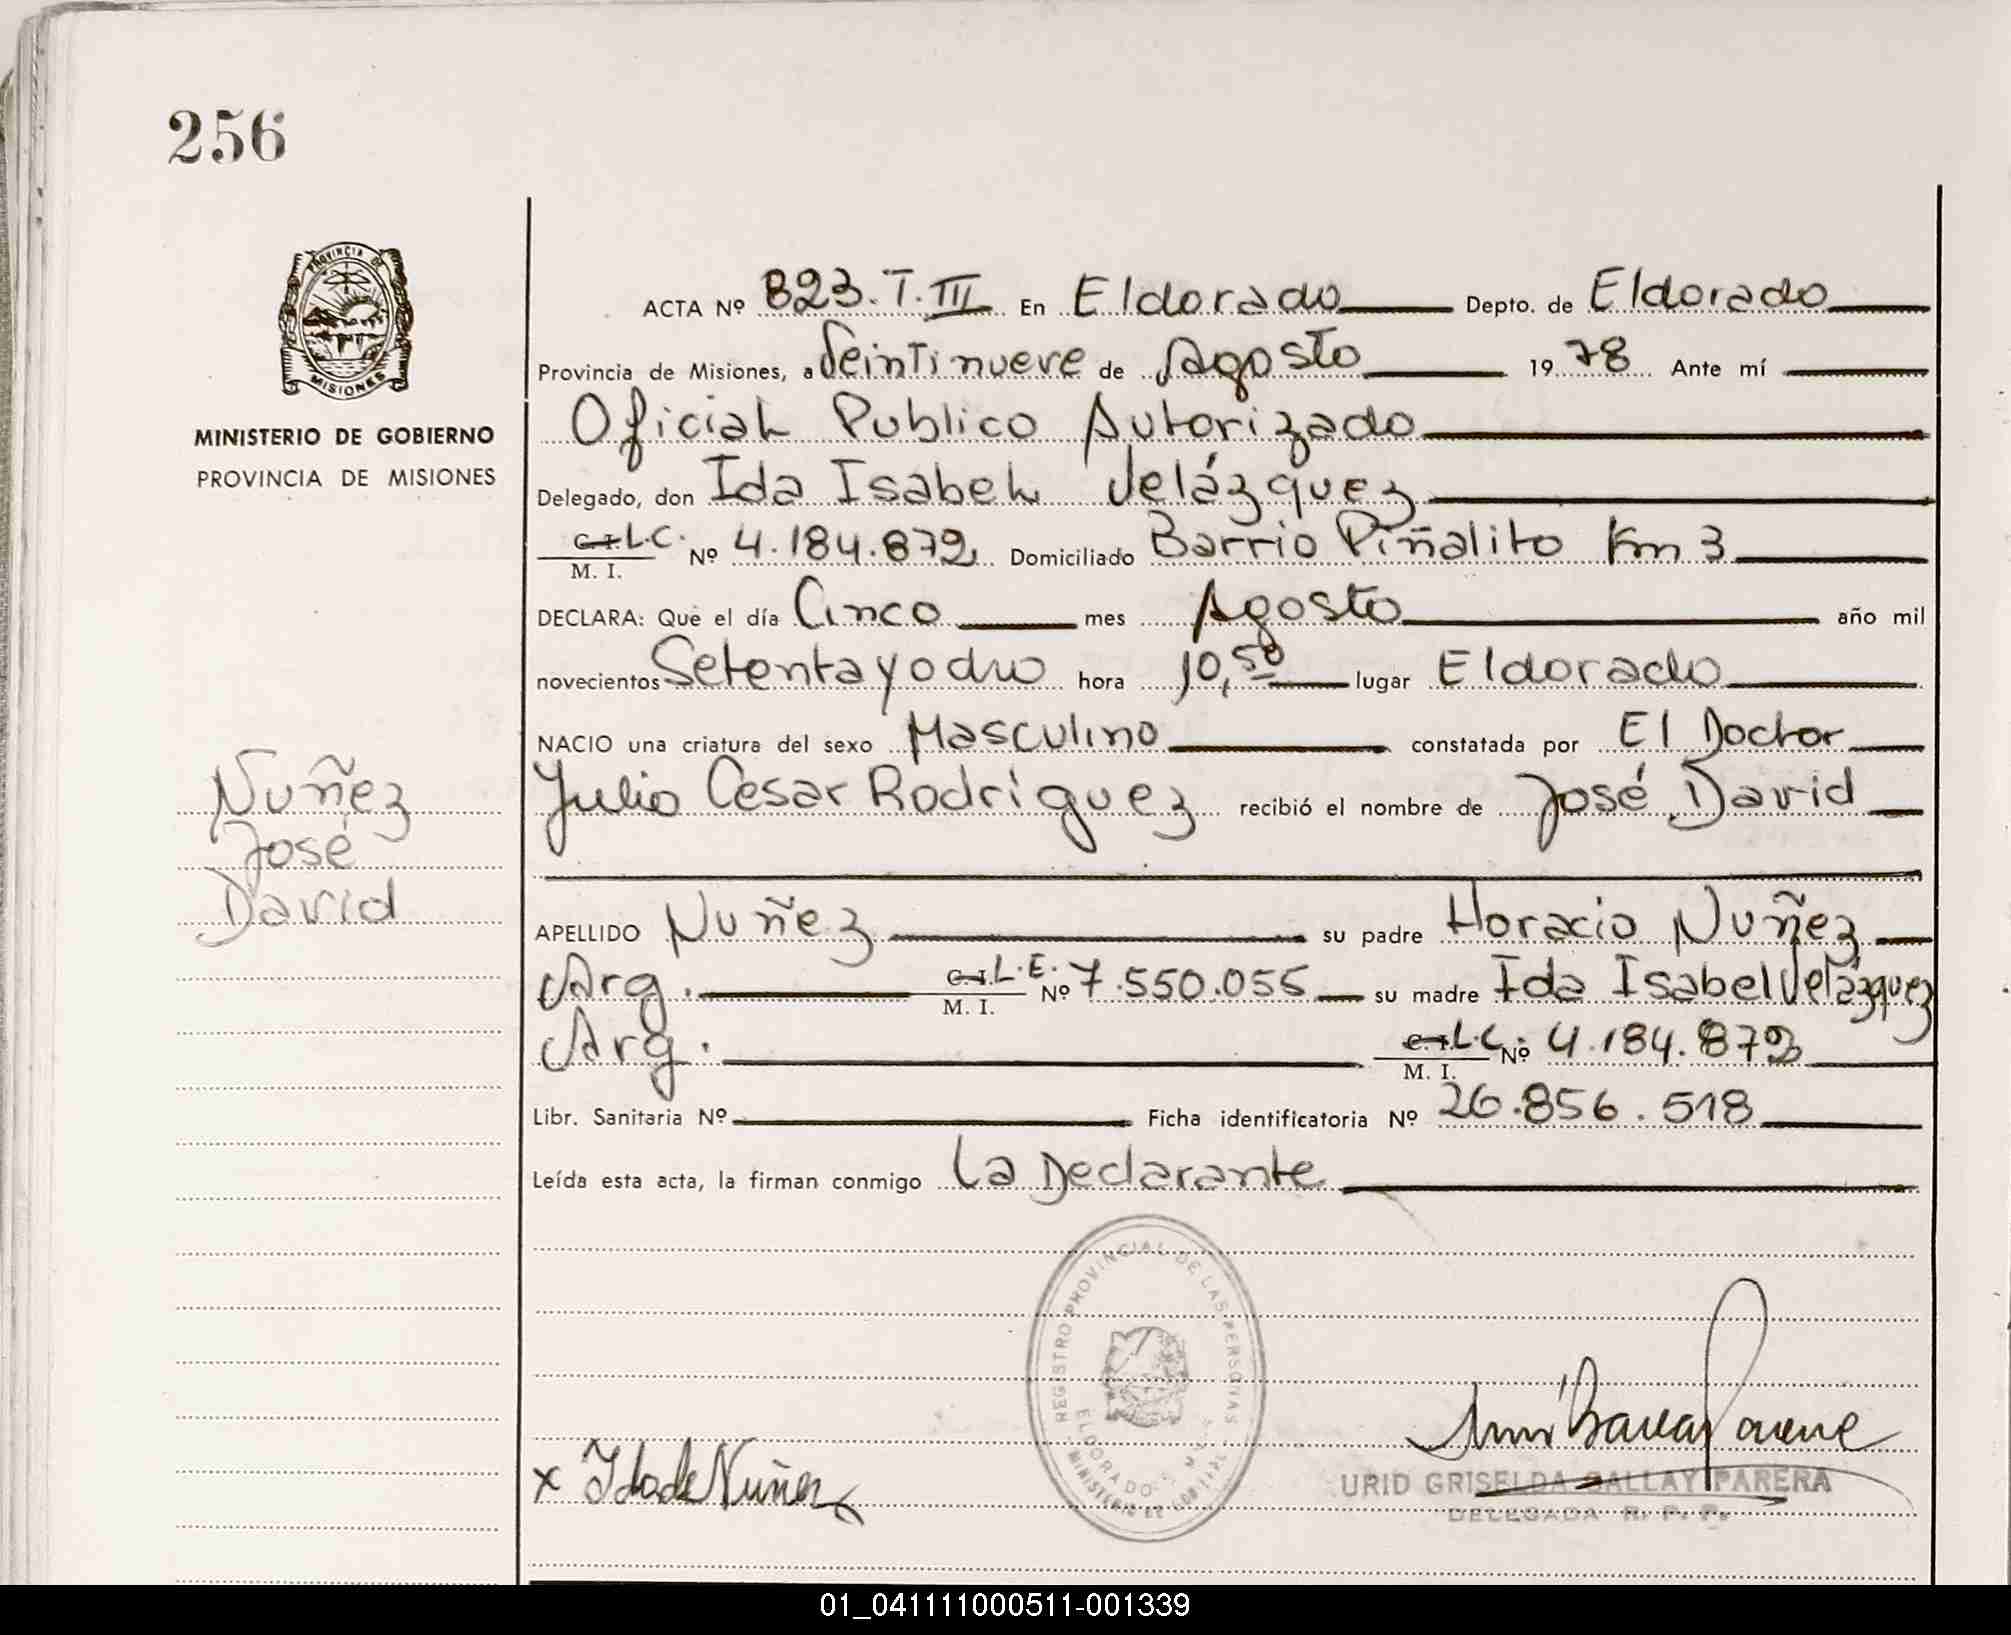 256
PROVINCIA DE
MISIONES
MINISTERIO DE GOBIERNO
PROVINCIA DE MISIONES
ACTA Nº 823.T.III En Eldorado Depto. de Eldorado
Provincia de Misiones, a Veintinueve de Agosto 1978 Ante mí
Oficial Publico Autorizado
Delegado, don Ida Isabel Velázquez
C.I. L.C. Nº 4.184.872 Domiciliado Barrio Piñalito Km 3
M. I.
DECLARA: Que el día Cinco mes Agosto año mil
novecientos Setenta y ocho hora 10,50 lugar Eldorado
NACIO una criatura del sexo Masculino constatada por El Doctor
Julio Cesar Rodríguez recibió el nombre de José David
Nuñez
José
David
APELLIDO Nuñez su padre Horacio Nuñez
Arg. C.I. L.E. Nº 7.550.055 su madre Ida Isabel Velázquez
M. I.
Arg. C.I. L.C. Nº 4.184.872
M. I.
Libr. Sanitaria Nº Ficha identificatoria Nº 26.856.518
Leída esta acta, la firman conmigo La Declarante
REGISTRO PROVINCIAL DE LAS PERSONAS
ELDORADO
MINISTERIO DE
x Ida de Nuñez
URID GRISELDA GALLAY PARERA
DELEGADA R. P. P.
01_041111000511-001339